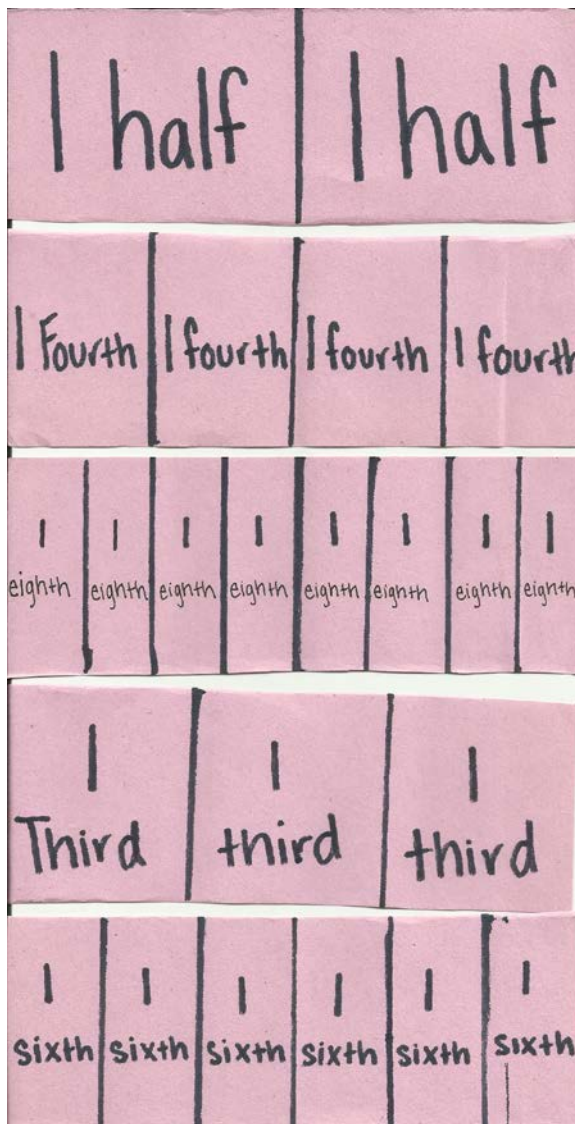 1 half 1 half
1 Fourth 1 fourth 1 fourth 1 fourth
1 1 1 1 1 1 1 1
eighth eighth eighth eighth eighth eighth eighth eighth
1 1 1
Third third third
1 1 1 1 1 1
sixth sixth sixth sixth sixth sixth